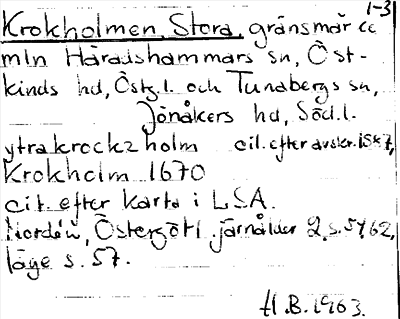 1-3
Krokholmen, Stora, gränsmärke
mln Häradshammars sn, Öst-
kinds hd, Östg.l. och Tunabergs sn,
Jönåkers hd, Söd.l.
ytra krockz holm cit. efter avskr. 1587,
Krokholm 1670
cit. efter karta i LSA.
Nordén, Östergötl. järnålder 2, s. 5, 62,
läge s. 57.
H.B. 1963.